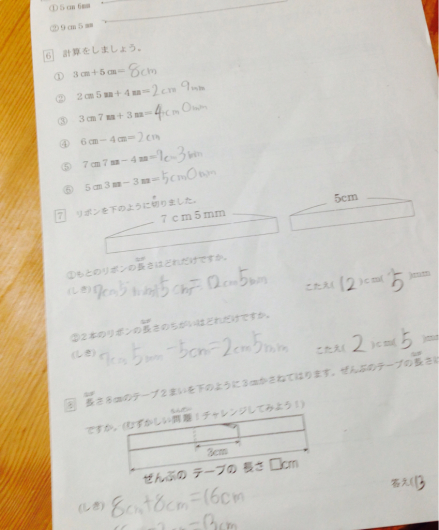 ①5cm6mm
②9cm5mm
6 計算をしましょう。
① 3cm+5cm=8cm
② 2cm5mm+4mm=2cm9mm
③ 3cm7mm+3mm=4cm0mm
④ 6cm-4cm=2cm
⑤ 7cm7mm-4mm=7cm3mm
⑥ 5cm3mm-3mm=5cm0mm
7 リボンを下のように切りました。
7cm5mm 5cm
①もとのリボンの長さはどれだけですか。
(しき)7cm5mm+5cm=12cm5mm こたえ(12)cm(5)mm
②2本のリボンの長さのちがいはどれだけですか。
(しき)7cm5mm-5cm=2cm5mm こたえ(2)cm(5)mm
8 長さ8cmのテープ2まいを下のように3cmかさねてはります。ぜんぶのテープの長さは
ですか。(むずかしい問題!チャレンジしてみよう!)
3cm
ぜんぶの テープの 長さ □cm
(しき) 8cm+8cm=16cm 答え(13
=13cm